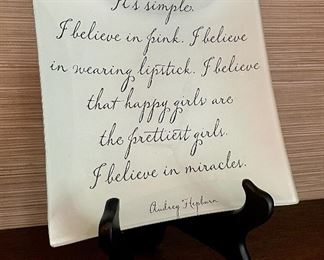 It's simple.
I believe in pink. I believe
in wearing lipstick. I believe
that happy girls are
the prettiest girls.
I believe in miracles.
Audrey Hepburn